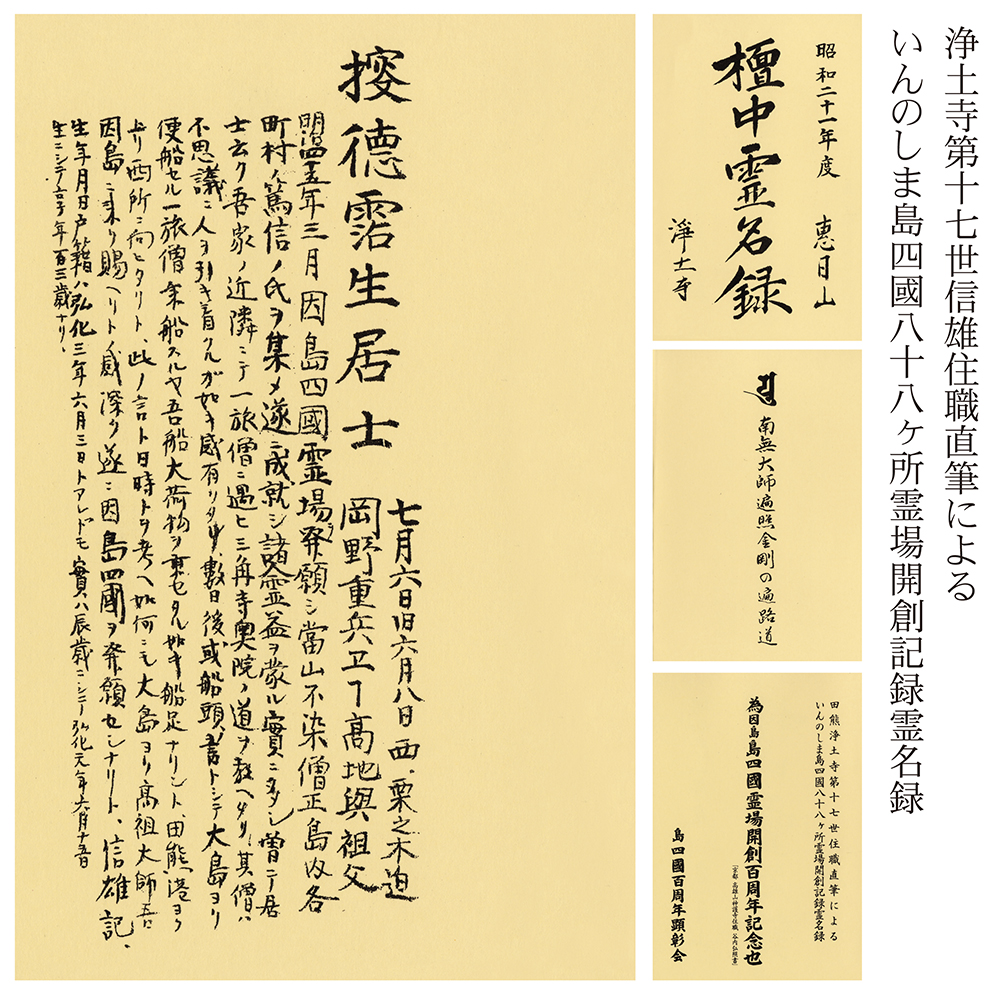 浄土寺第十七世信雄住職直筆による
いんのしま島四國八十八ヶ所霊場開創記録霊名録
昭和二十一年度
檀中霊名録
惠日山
淨土寺
南無大師遍照金剛の遍路道
田熊浄土寺第十七世住職直筆による
いんのしま島四國八十八ヶ所霊場開創記録霊名録
為因島島四國霊場開創百周年記念也
「京都 高雄山神護寺住職 谷内弘照書」
島四國百周年顕彰会
七月六日旧六月八日 西、栗之木迫
德霑生居士 岡野重兵ヱ 高地與祖父
明治四十五年三月因島四國霊場ヲ発願シ當山不染僧正島内各
町村ノ篤信ノ氏ヲ集メ遂ニ成就シ諸霊益ヲ蒙ル實ニ多シ曽テ居
士云ク吾家ノ近隣ニテ一旅僧ニ遇ヒ三角寺奥院ノ道ヲ教ヘタリ、其僧ハ
不思議ニ人ヲ引キ着クルガ如キ感有リタリ、數日後或船頭ノ言トシテ大島ヨリ
便船セル一旅僧乗船スルヤ吾船大荷物ヲ乗セタル如キ船足ナリシト、田熊港ヨリ
西所ニ向ヒタリト、此ノ言ト日時トヲ考ヘ如何ニモ大島ヨリ高祖大師吾
因島ニ来リ賜ヘリト感深ク遂ニ因島四國ヲ発願セシナリト、信雄記、
生年月日戸籍ハ弘化三年六月三日トアレドモ實ハ辰歳ニシテ弘化元年六月十五日
生ニシテ享年百三歳ナリ、